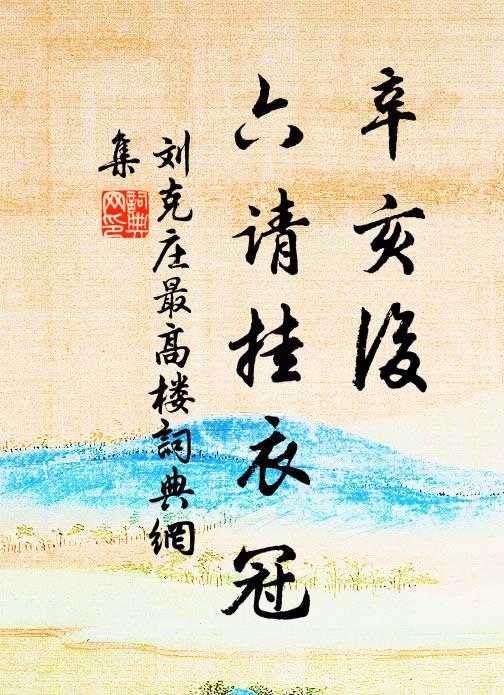 辛亥後
六请挂衣冠
刘克庄最高楼詞典網
集
詞典网印